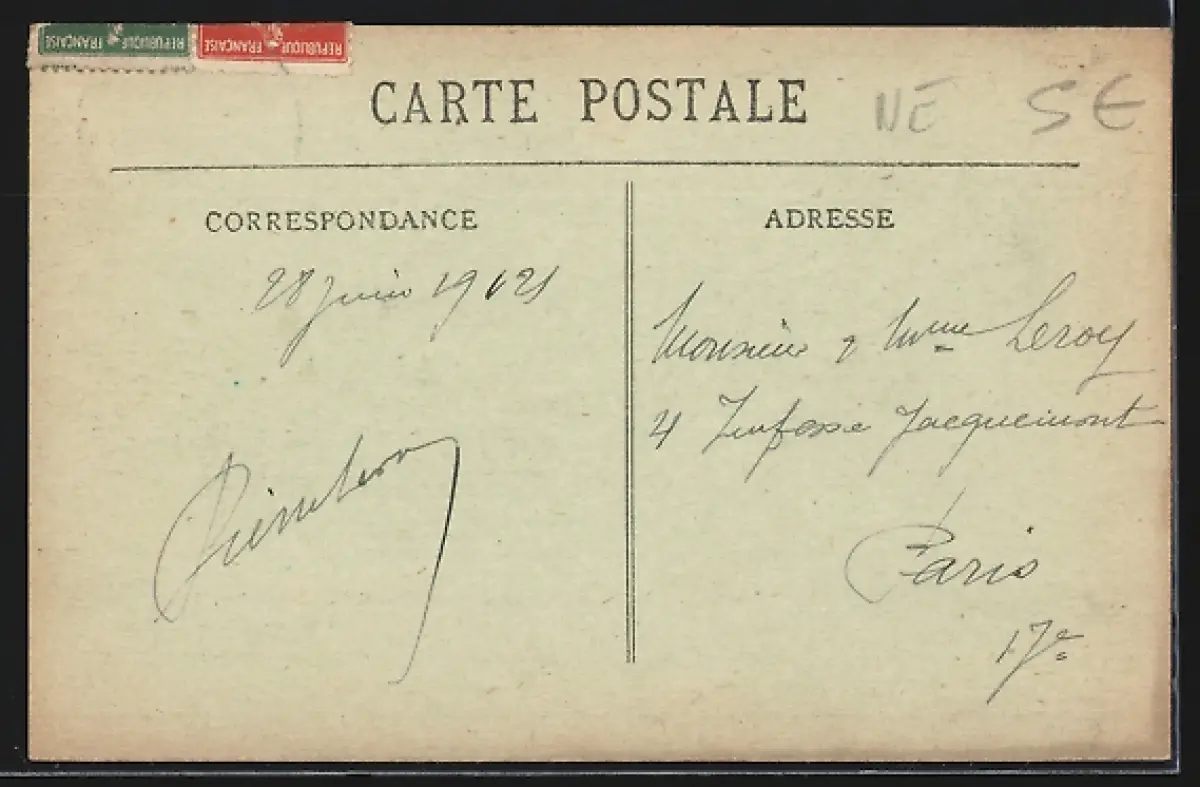 REPUBLIQUE FRANÇAISE REPUBLIQUE FRANÇAISE
CARTE POSTALE
NE 5€
CORRESPONDANCE
28 Juin 1921
Pierre Leroy
ADRESSE
Monsieur & Mme Leroy
4 Jacquemont
Paris
17e